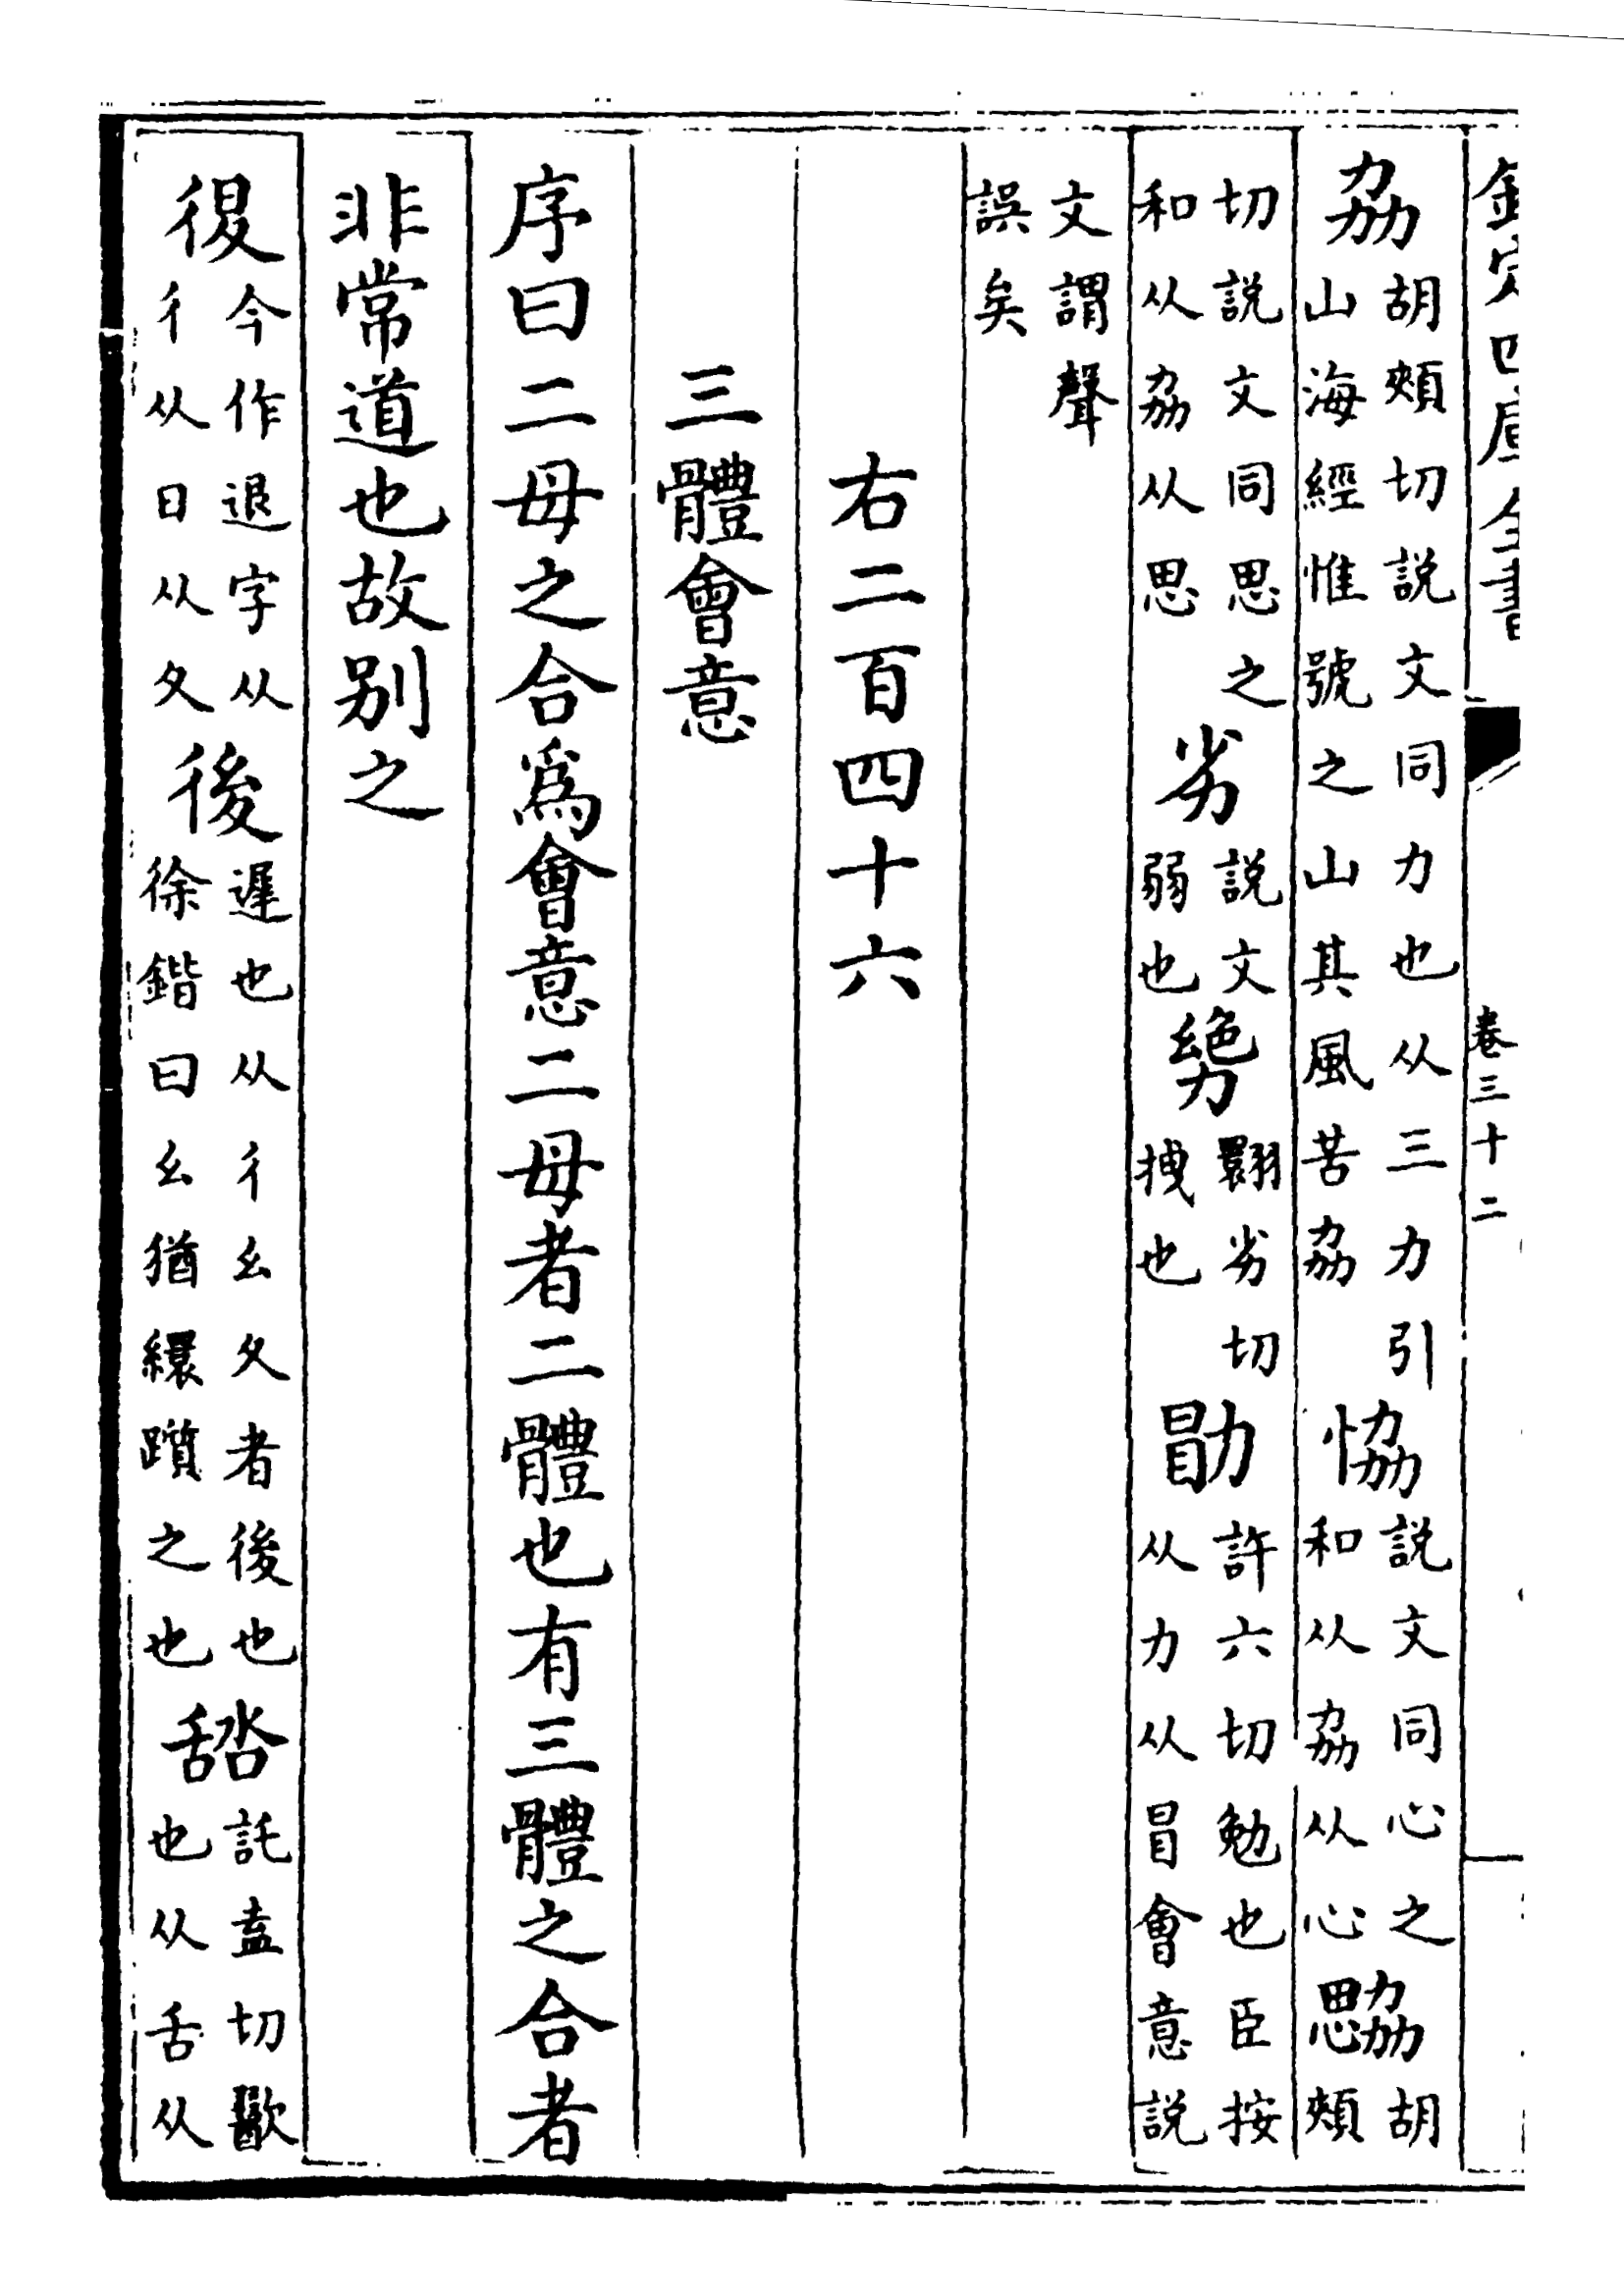 欽定四庫全書 卷三十二
劦胡頰切説文同力也从三力引山海經惟號之山其風苦劦恊説文同心之和从劦从心勰胡頰
切説文同思之和从劦从思劣説文弱也翾劣切拽也勖許六切勉也臣按从力从冒會意説
文謂聲誤矣
右二百四十六
三體會意
序曰二母之合爲會意二母者二體也有三體之合者
非常道也故别之
𢓇今作退字从彳从日从夊後遲也从彳幺夊者後也徐鍇曰幺猶繯躓之也𦧥託盍切歠也从舌从